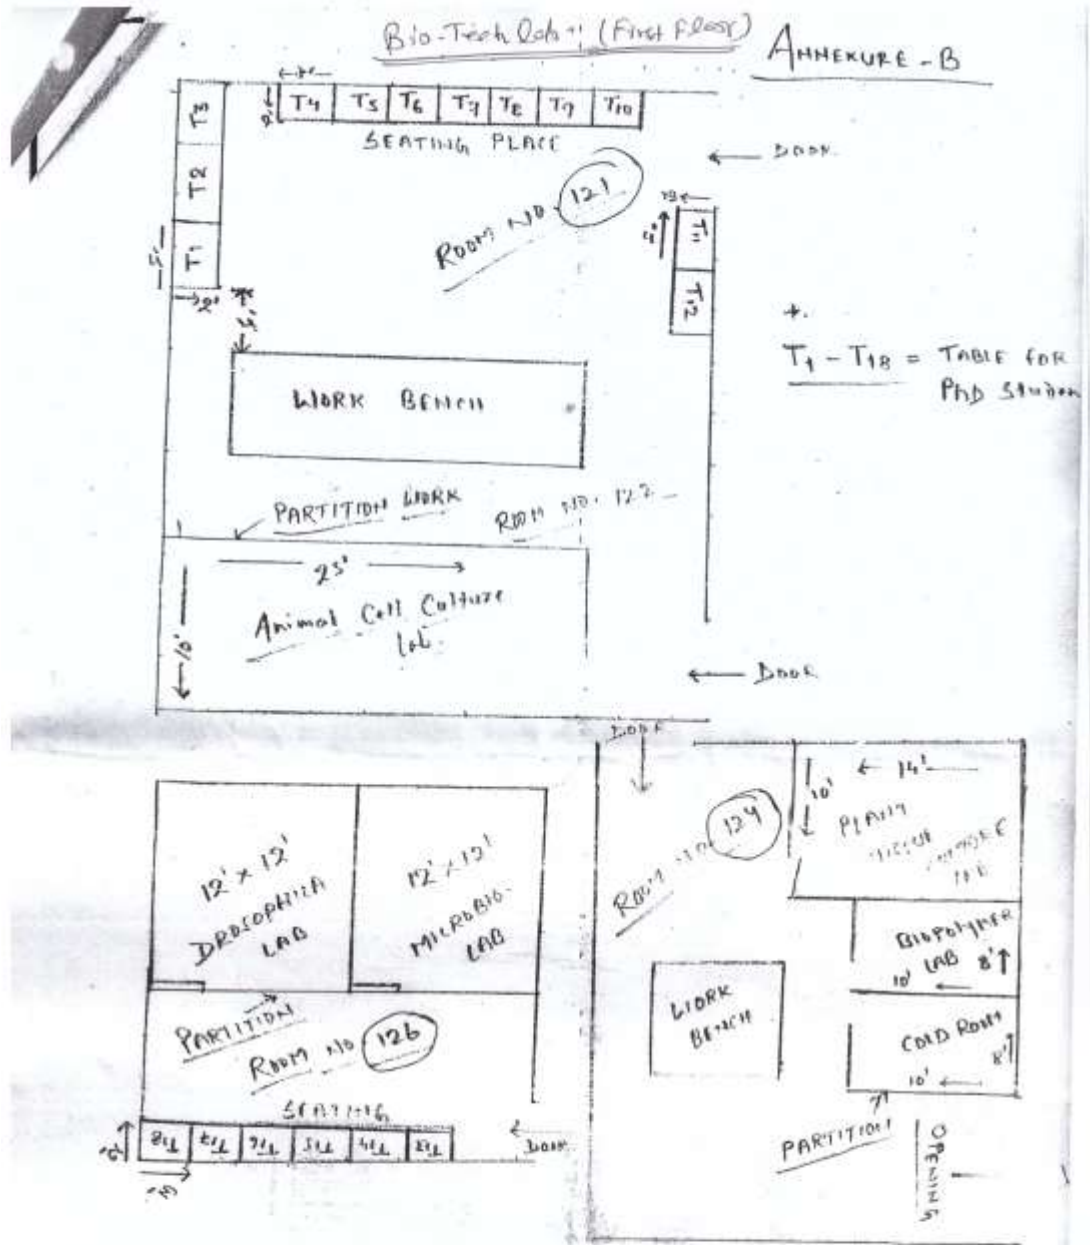 Bio-Tech Lab-1 (First Floor)
ANNEXURE-B
T4 T5 T6 T7 T8 T9 T10
SEATING PLACE
T3
T2
T1
5'
2'
DOOR
ROOM NO. 121
T11
T12
*
T1 - T18 = TABLE FOR
PhD Studen
WORK BENCH
PARTITION WORK
ROOM NO. 122
25'
10'
Animal Cell Culture
lab.
DOOR
DOOR
12' x 12'
DROSOPHILA
LAB
12' x 12'
MICROBIO.
LAB
PARTITION
ROOM NO 126
SEATING
T18 T17 T16 T15 T14 T13
DOOR
ROOM NO. 124
14'
10'
PLANT
TISSUE
CULTURE
LAB
BIOPOLYMER
LAB
8'
10'
WORK
BENCH
COLD ROOM
8'
10'
PARTITION
OPENING